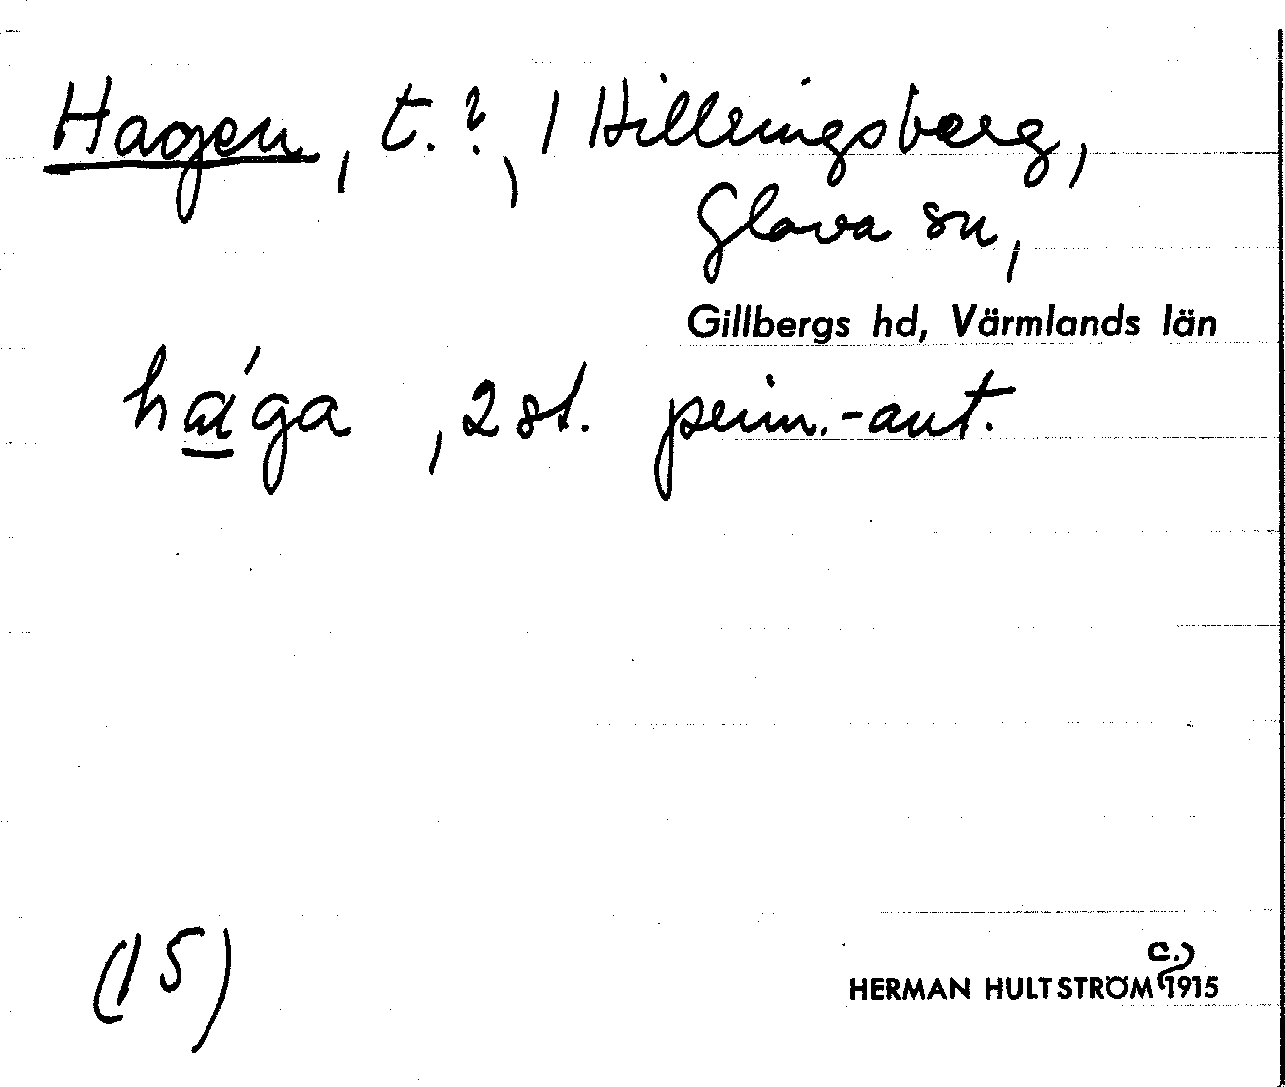 Hagen, t.?, / Hillringsberg,
Glava sn,
Gillbergs hd, Värmlands län
há̱ga, 2 st. prim.-aut.
(15)
c.)
HERMAN HULTSTRÖM 1915